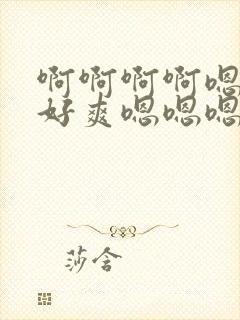 啊啊啊啊嗯
好爽嗯嗯嗯
莎含